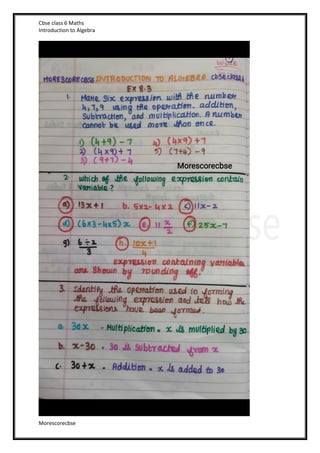 Cbse class 6 Maths
Introduction to Algebra
MORESCORECBSE INTRODUCTION TO ALGEBRA CBSE CLASS 6
EX 8.3
1. Make six expression with the number
4, 7, 9 using the operation. addition,
Subtraction, and multiplication. A number
cannot be used more than once.
1) (4+9) - 7 4) (4x9)+7
2) (4x9)+ 7 5) (7+4) - 9
3) (9+7) - 4
Morescorecbse
2. Which of the following expression contain
Variable ?
a) 13x+1 b. 5x2-4x2 c) 11x-2
d) (6x3-4x5)x e. 11 x/2 f. 25x-7
g) 6÷2/3 h. 10x+1/4
expression containing variables
are Shown by rounding off.
3. Identify the operation used in forming
the following expression and tell how the
expressions have been formed.
a. 30x - Multiplication = x is multiplied by 30
b. x-30 - 30 is Subtracted from x
c. 30+x - Addition = x is added to 30
Morescorecbse